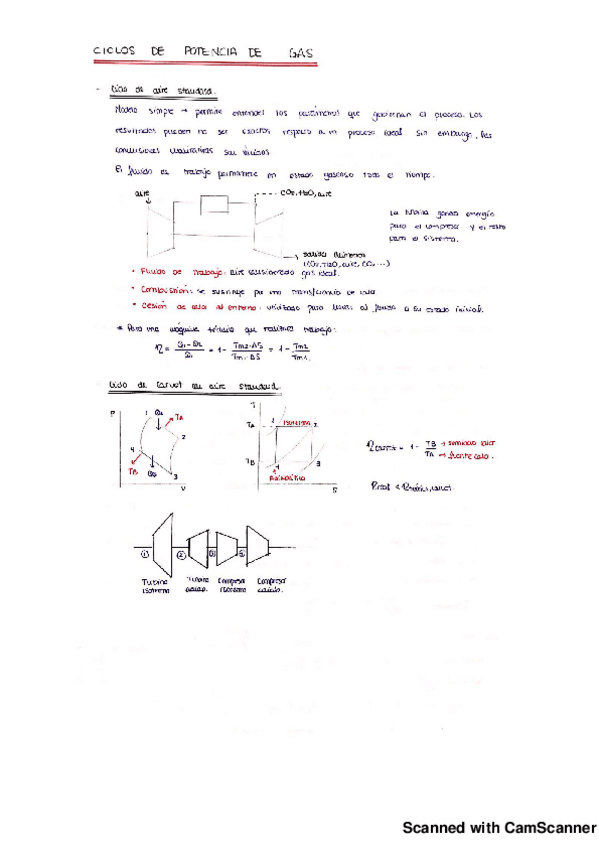 CICLOS DE POTENCIA DE GAS
- Ciclo de aire standard.
Modelo simple → permite entender los parámetros que gobiernan el proceso. Los
resultados pueden no ser exactos respecto a un proceso ideal. Sin embargo, las
conclusiones cualitativas son válidas
El fluido de trabajo permanece en estado gaseoso todo el tiempo.
aire
CO2, H2O, aire
La turbina genera energía
para el compresor y el resto
para el sistema.
salida
(CO2, H2O, aire, CO, ...)
• Fluido de trabajo: aire gas ideal.
• Combustión: se sustituye por una transferencia de calor
• Cesión de calor al entorno: utilizado para llevar al fluido a su estado inicial.
* Para una máquina térmica que realiza trabajo:
η = Q1-Q2 / Q1 = 1 - Tm2·ΔS / Tm1·ΔS = 1 - Tm2 / Tm1
- Ciclo de Carnot de aire standard.
P 1 Qa TA 2 4 TB Qb 3 V
T TA 1 ISOTERMA 2 TB 4 3 ADIABÁTICA S
η carnot = 1 - TB / TA → sumidero calor → fuente calor.
① ② ③ ④
Turbina Turbina Compresor Compresor
isoterma isotermo
Scanned with CamScanner